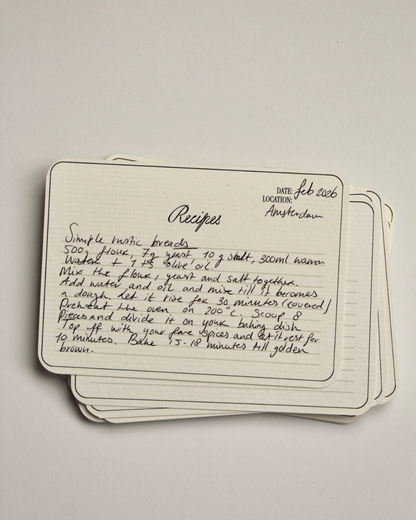 DATE: feb 2026
LOCATION:
Amsterdam
Recipes
Simple rustic breads
500g flour, 7g yeast, 10 g salt, 300ml warm
Water + 1 ts olive oil.
Mix the flour, yeast and salt together.
Add water and oil and mix till it becomes
a dough. Let it rise for 30 minutes (covered)
Preheat the oven on 200°C. Scoop 8
Pieces and divide it on your baking dish
Top off with your fave spices and let it rest for
10 minutes. Bake 15-18 minutes till golden
brown.